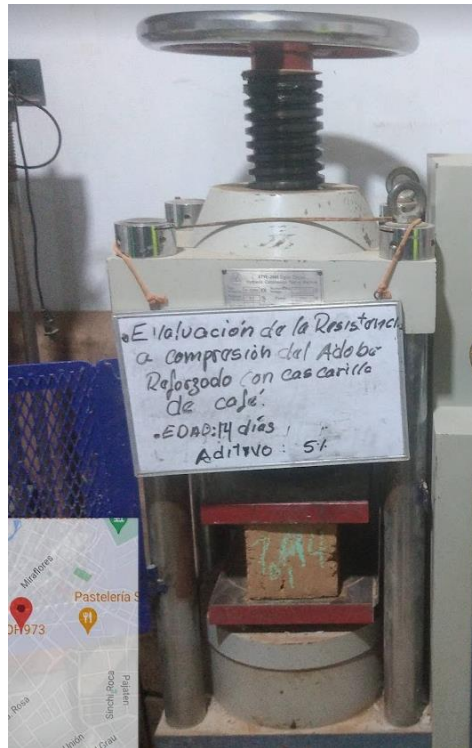 •Evaluación de la Resistenci
a compresión del Adobe
Reforzado con cascarilla
de café.
•EDAD:14 días
Aditivo: 5%
Miraflores
Pastelería S
OH973
Sinchi Roca
Pajaten
Rosa
Unión
Grau